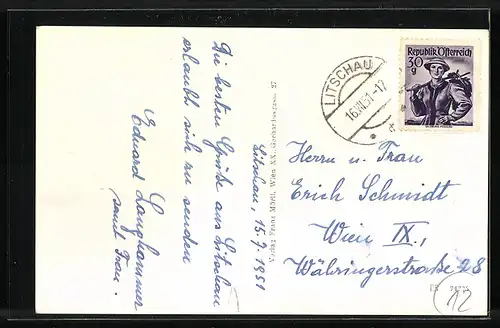 Die besten Grüße aus Litschau
erlaubt sich zu senden
Eduard Langhammer
samt Frau.
Litschau, 15.7.1951
Verlag Franz Mörtl, Wien XX., Gerhardusgasse 27
LITSCHAU
16.VII.51-12
Republik Österreich
30
g
Herrn u. Frau
Erich Schmidt
Wien IX.,
Währingerstraße 28
12